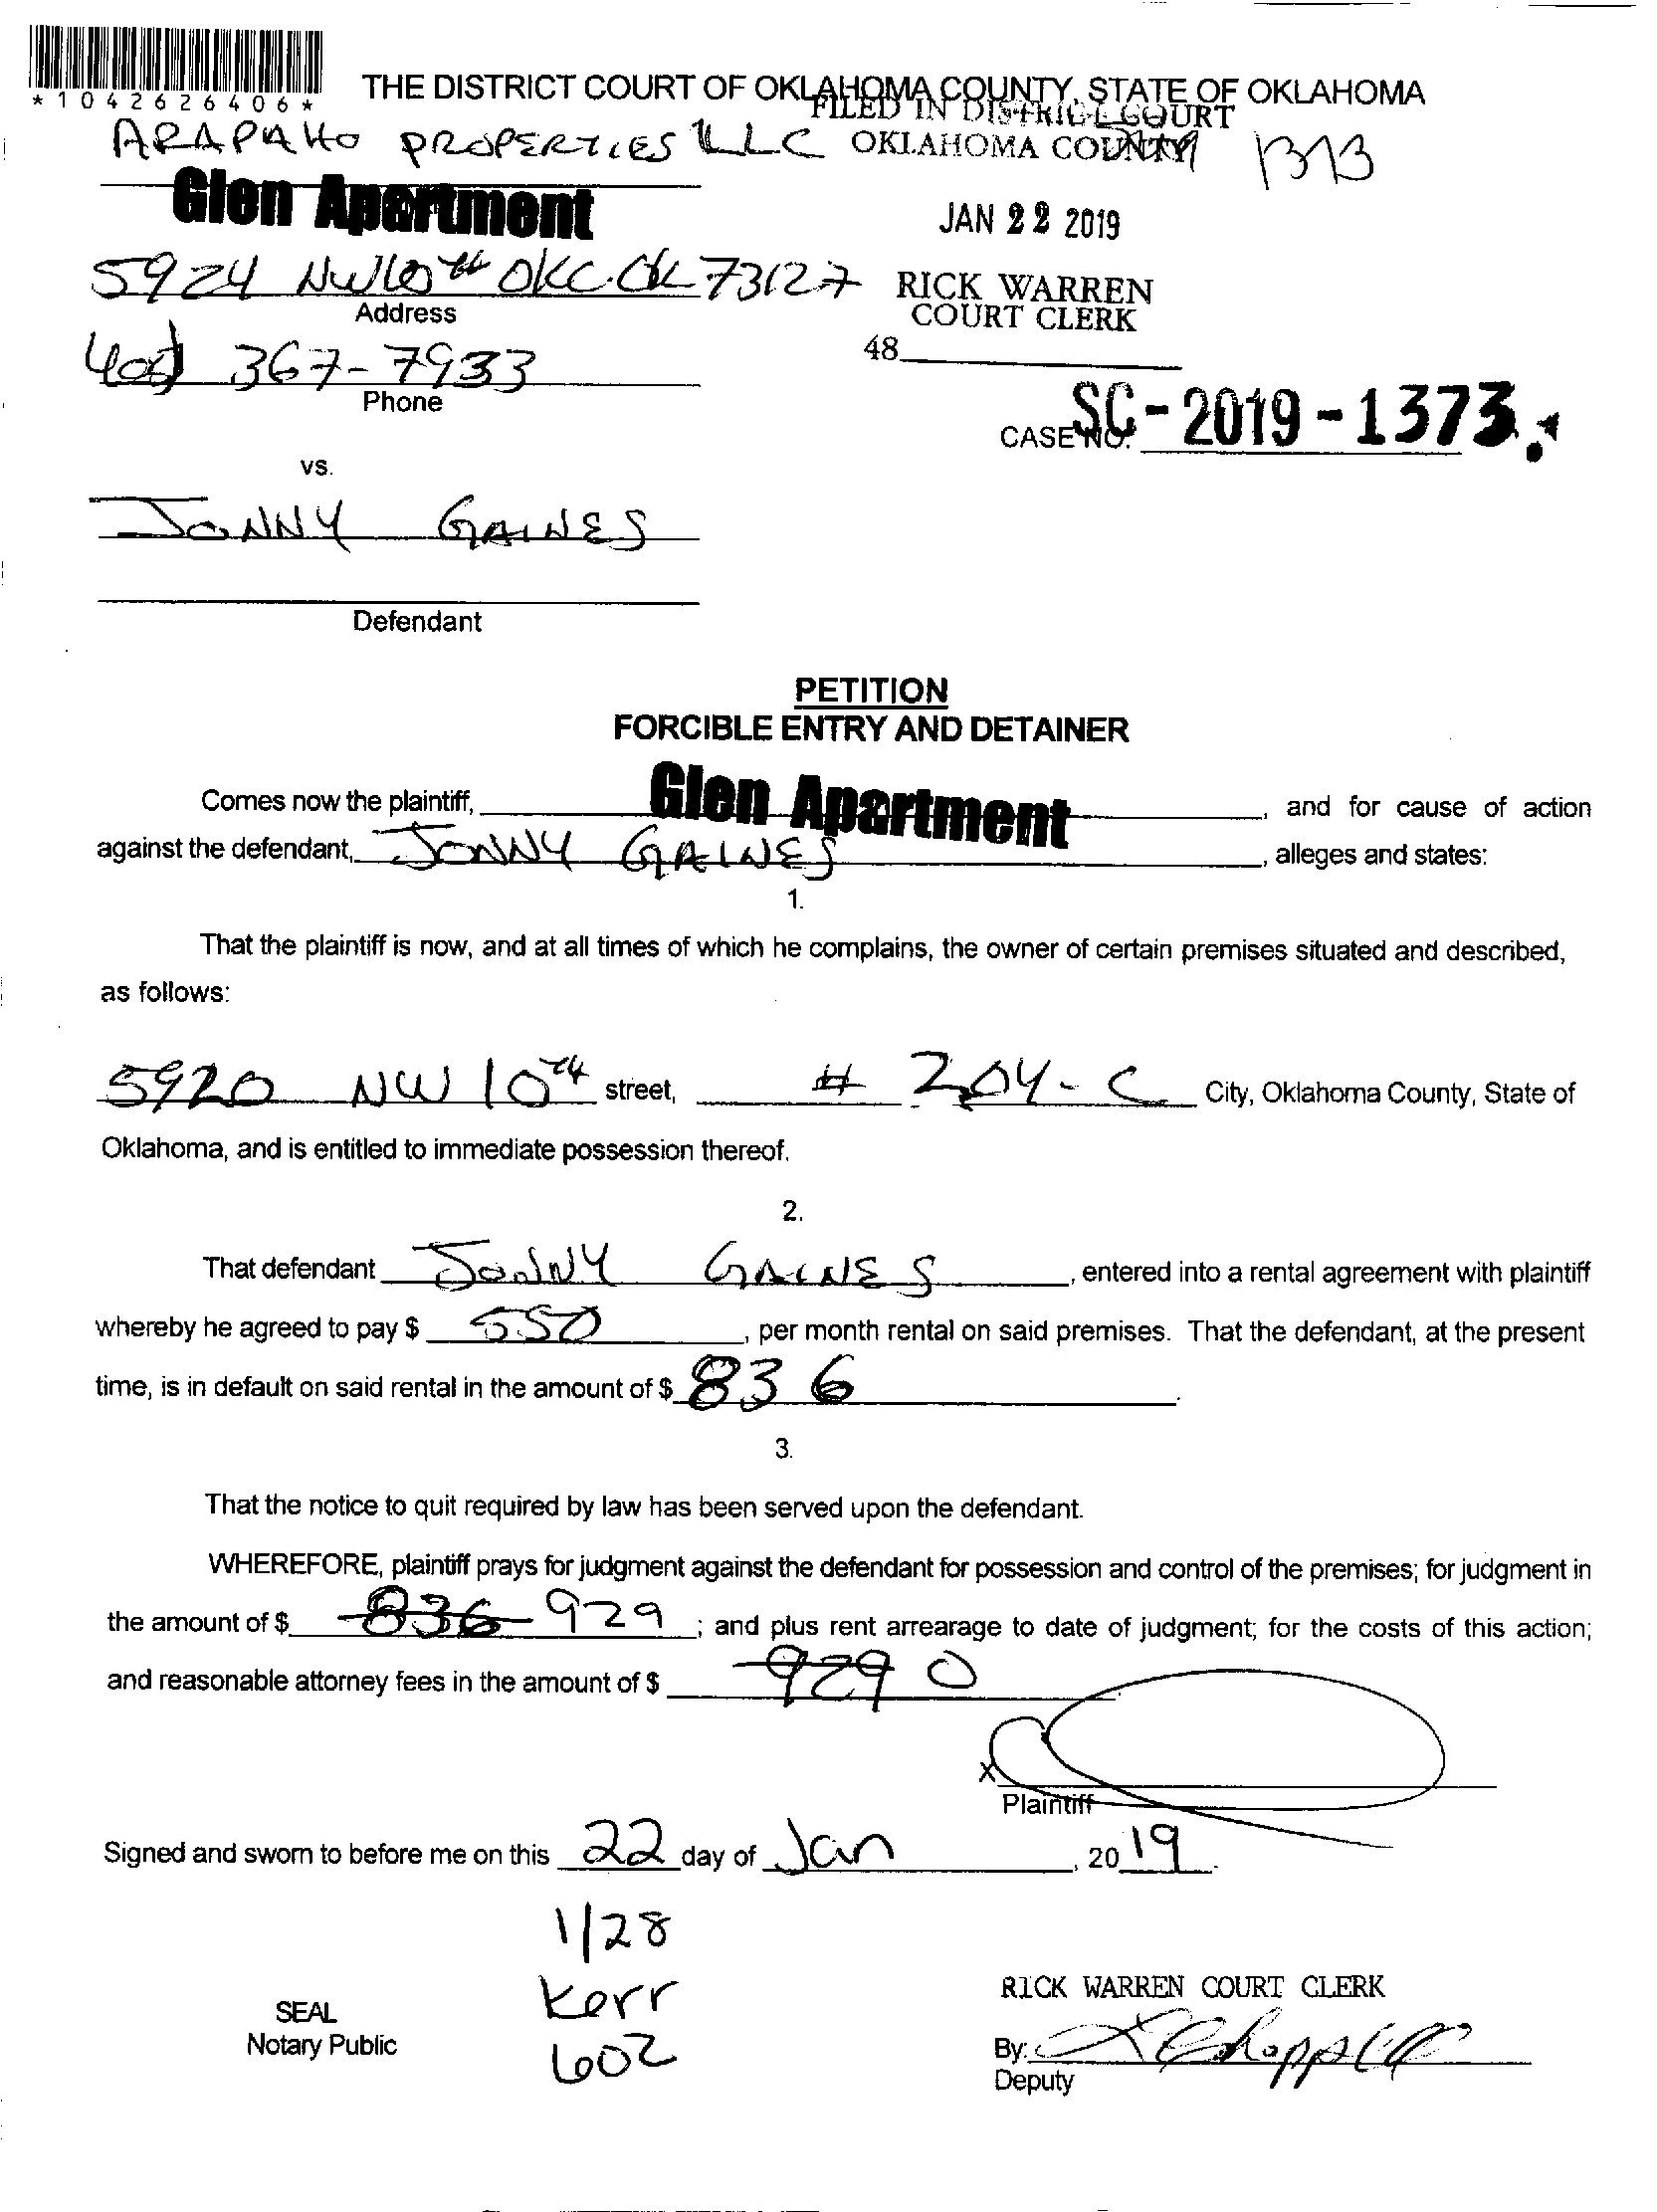 *1042626406*
THE DISTRICT COURT OF OKLAHOMA COUNTY, STATE OF OKLAHOMA
FILED IN DISTRICT COURT
ARAPAHO PROPERTIES LLC
OKLAHOMA COUNTY
Glen Apartment
JAN 22 2019
5924 NW 10th OKC. OK 73127
RICK WARREN
COURT CLERK
Address
48
405) 367-7933
Phone
CASE NO. SC-2019-1373
vs.
JONNY GAINES
Defendant
PETITION
FORCIBLE ENTRY AND DETAINER
Comes now the plaintiff, Glen Apartment, and for cause of action
against the defendant, JONNY GAINES, alleges and states:
1.
That the plaintiff is now, and at all times of which he complains, the owner of certain premises situated and described,
as follows:
5920 NW 10TH street, # 204-C City, Oklahoma County, State of
Oklahoma, and is entitled to immediate possession thereof.
2.
That defendant JONNY GAINES, entered into a rental agreement with plaintiff
whereby he agreed to pay $ 550, per month rental on said premises. That the defendant, at the present
time, is in default on said rental in the amount of $ 836.
3.
That the notice to quit required by law has been served upon the defendant.
WHEREFORE, plaintiff prays for judgment against the defendant for possession and control of the premises; for judgment in
the amount of $ 836 929; and plus rent arrearage to date of judgment; for the costs of this action;
and reasonable attorney fees in the amount of $ 929 0.
x
Plaintiff
Signed and sworn to before me on this 22 day of Jan, 2019.
1/28
Kerr
602
SEAL
Notary Public
RICK WARREN COURT CLERK
By:
Deputy